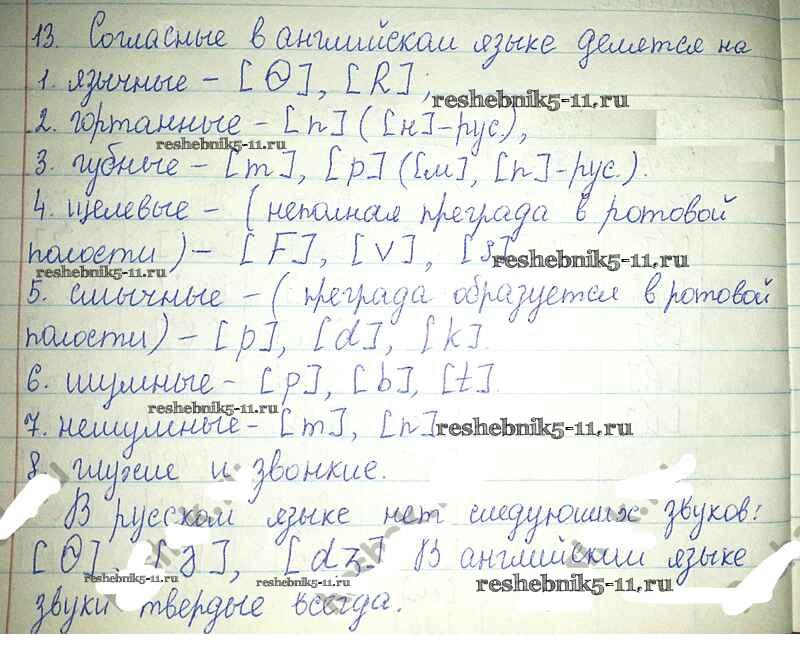 13. Согласные в английском языке делятся на
1. язычные – [Θ], [R];
reshebnik5-11.ru
2. гортанные – [n] ([н]-рус.),
reshebnik5-11.ru
3. губные – [m], [p] ([м], [п]-рус.).
4. щелевые – (неполная преграда в ротовой
полости) – [F], [v], [s]
reshebnik5-11.ru
reshebnik5-11.ru
5. смычные – (преграда образуется в ротовой
полости) – [p], [d], [k].
6. шумные – [p], [b], [t].
reshebnik5-11.ru
7. нешумные – [m], [n]
reshebnik5-11.ru
8. глухие и звонкие.
В русском языке нет следующих звуков:
[Θ], [з], [dз] В английском языке
reshebnik5-11.ru
reshebnik5-11.ru
reshebnik5-11.ru
звуки твердые всегда.